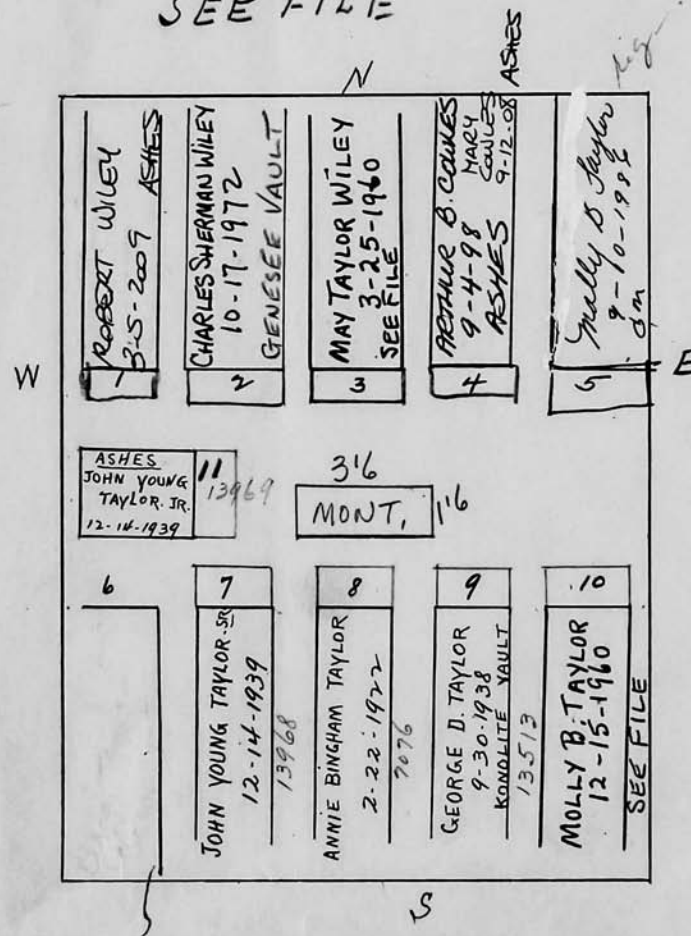 SEE FILE
N
ROBERT WILEY
3-5-2009 ASHES
1
CHARLES SHERMAN WILEY
10-17-1972
GENESEE VAULT
2
MAY TAYLOR WILEY
3-25-1960
SEE FILE
3
ARTHUR B. COWLES
9-4-98
ASHES
MARY
COWLES
9-12-08
ASHES
4
Molly B Taylor
9-10-198
5
W
E
ASHES
JOHN YOUNG
TAYLOR. JR.
12-14-1939
11
13969
3'6
MONT.
1'6
6
7
JOHN YOUNG TAYLOR. SR
12-14-1939
13968
8
ANNIE BINGHAM TAYLOR
2-22-1922
7076
9
GEORGE D. TAYLOR
9-30-1938
KONOLITE VAULT
13513
10
MOLLY B. TAYLOR
12-15-1960
SEE FILE
S